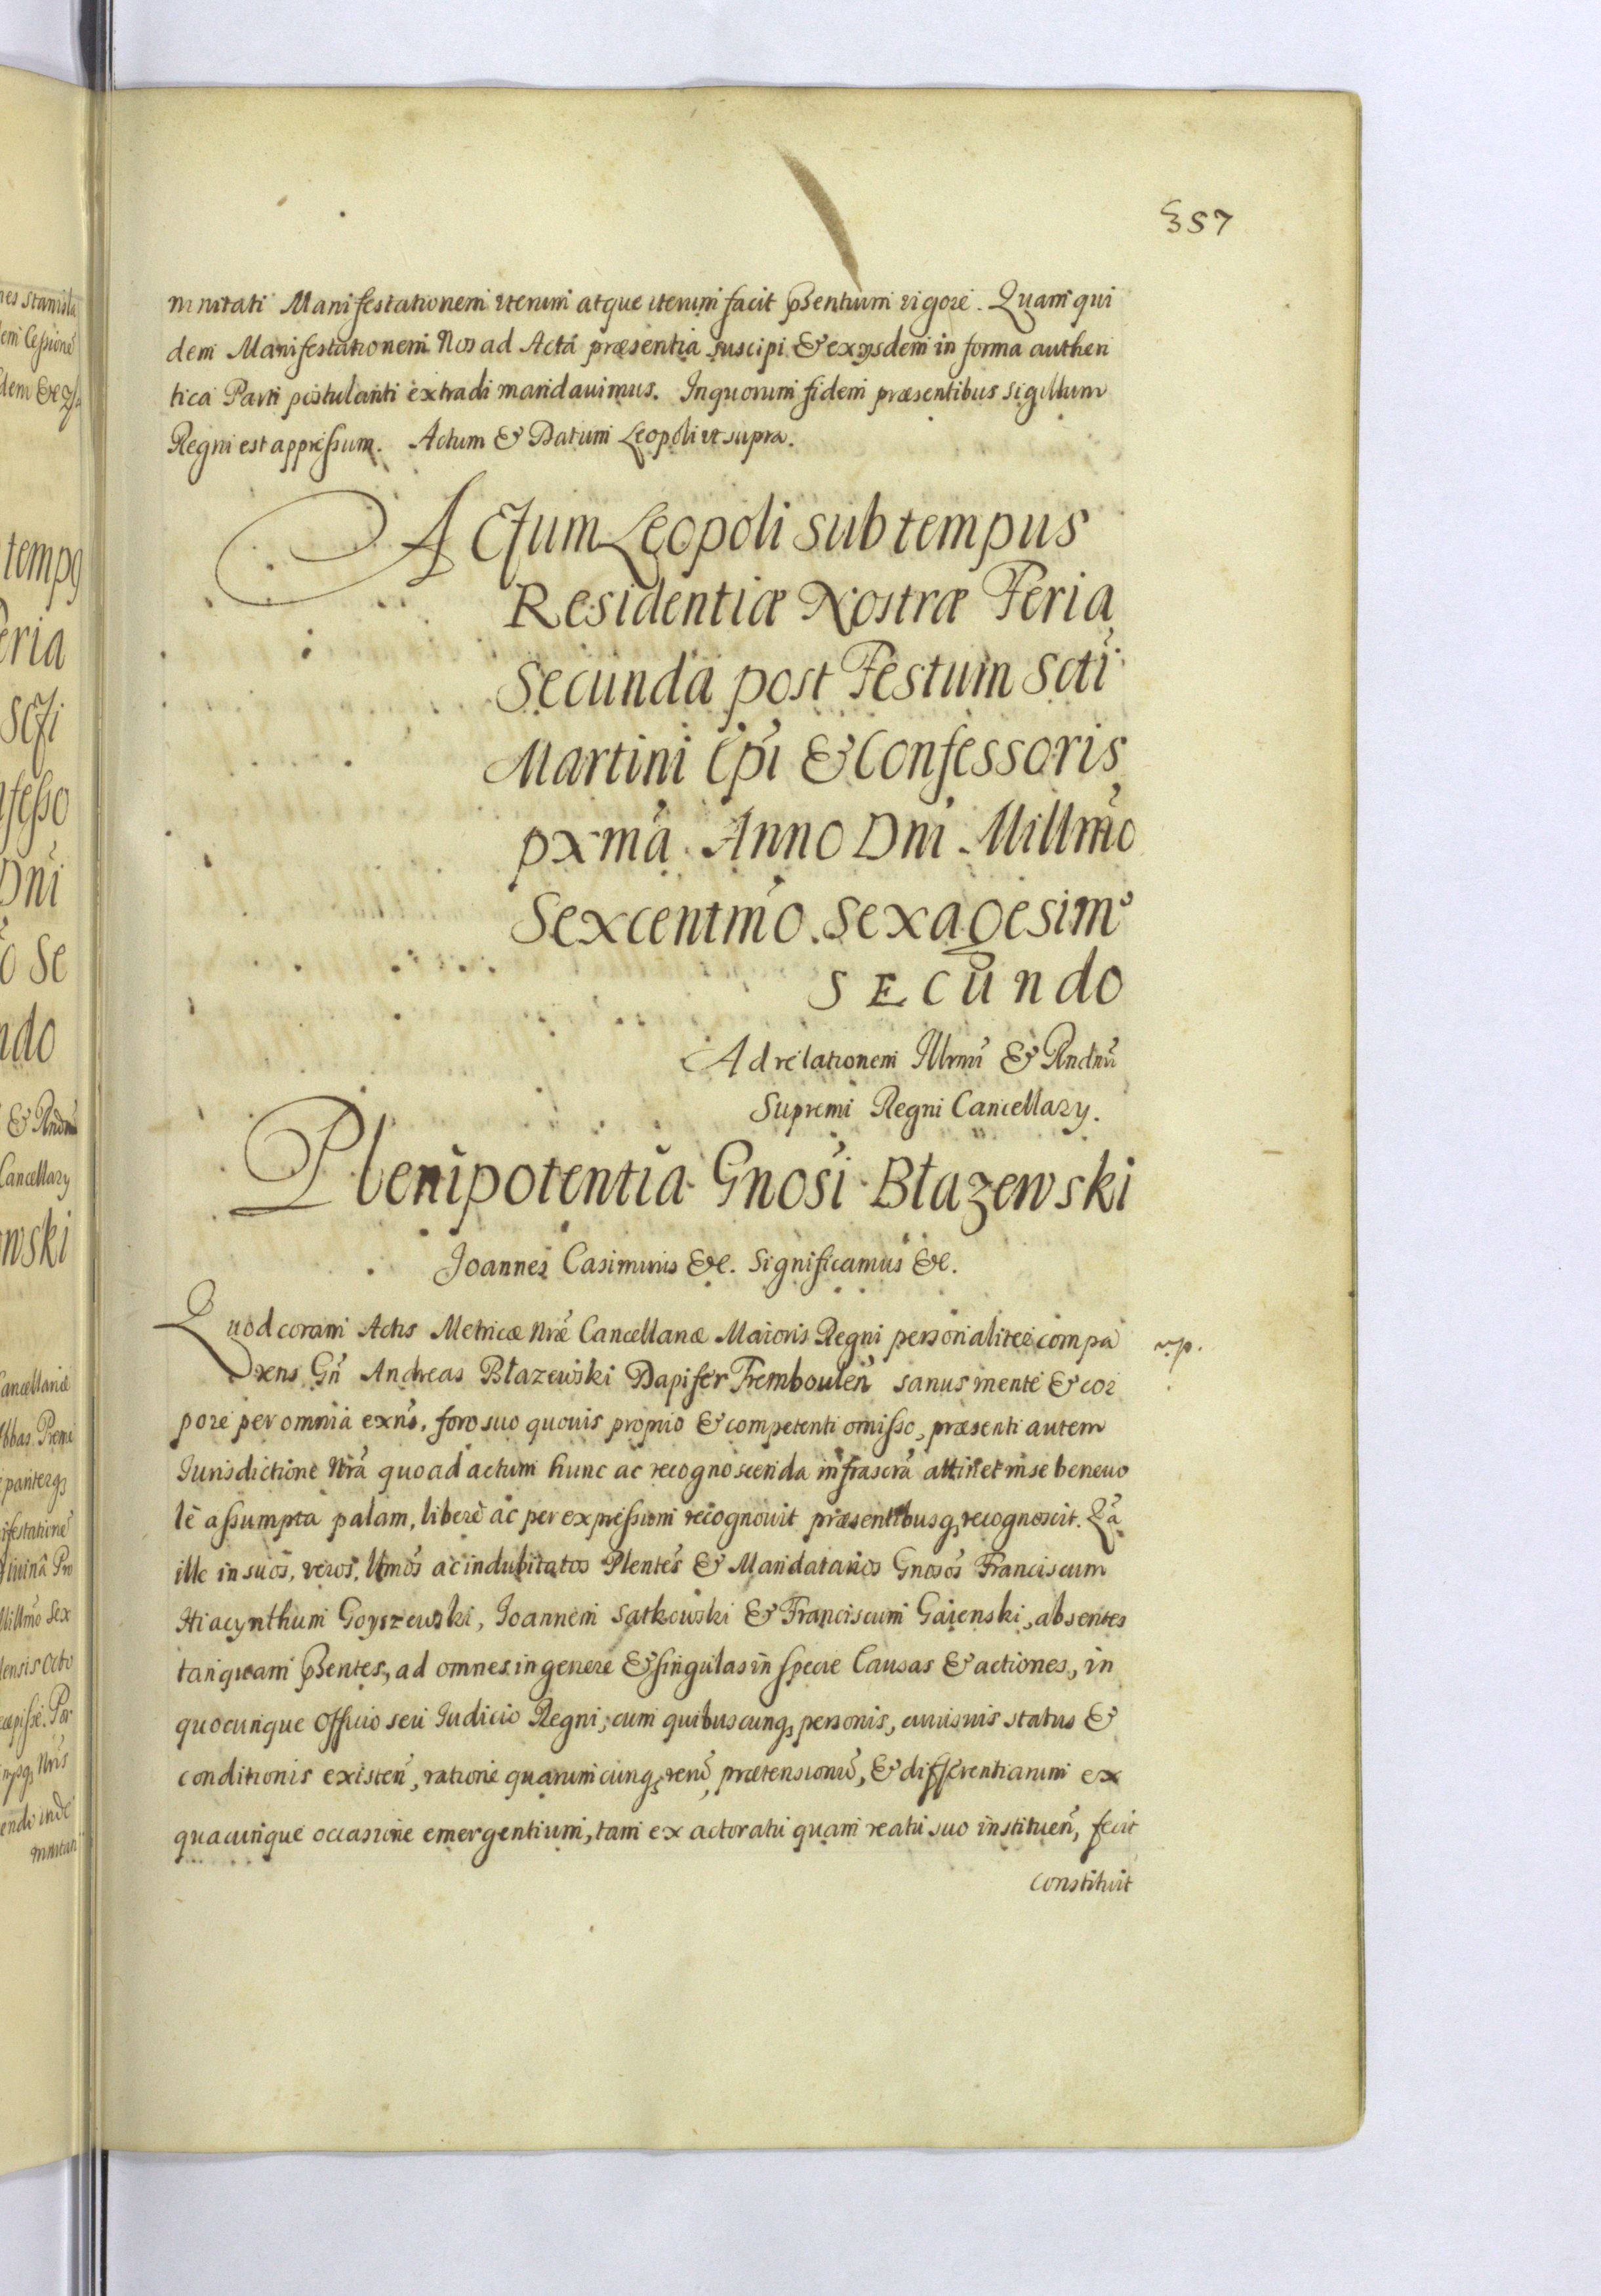 357
mnitati Manifestationem iterum atque iterum facit p̄sentium vigore. Quam qui
dem Manifestationem Nos ad Acta præsentia suscipi & ex ijsdem in forma authen
tica Parti postulanti extradi mandauimus. In quorum fidem præsentibus sigillum
Regni est appressum. Actum & Datum Leopoli vt supra.
Actum Leopoli sub tempus
Residentiæ Nostræ Feria
Secunda post Festum Scti
Martini Epi & Confessoris
pxma Anno Dni Millmo
Sexcentmo Sexagesimo
SEcundo
Ad relationem Illrmi & Rndmi
Supremi Regni Cancellary.
Plenipotentia Gnosi Błazewski
Joannes Casimirus &c. Significamus &c.
Quod coram Actis Metricæ Nræ Cancellariæ Maioris Regni personaliter compa
rens Gn̄ Andreas Błazewski Dapifer Trembouleñ sanus mente & cor
pore per omnia exns, foro suo quouis proprio & competenti omisso, præsenti autem
Iurisdictione Nrã quoad actum hunc ac recognoscenda infrascrã attinet in se beneuo
le assumpta palam, libere ac per expressum recognouit præsentibusq, recognoscit. Qã
ille in suos, veros, lttmos ac indubitatos Plentes & Mandatarios Gnosos Franciscum
Hiacynthum Goyszewski, Joannem Satkowski & Franciscum Gaienski, absentes
tanquam p̄sentes, ad omnes in genere & singulas in specie Causas & actiones, in
quocunque Officio seu Iudicio Regni, cum quibuscunq, personis, cuiusuis status &
conditionis existeñ, ratione quarumcunq, rerũ, prætensionũ, & differentiarum ex
quacunque occasione emergentium, tam ex actoratu quam reatu suo institueñ, fecit
constituit